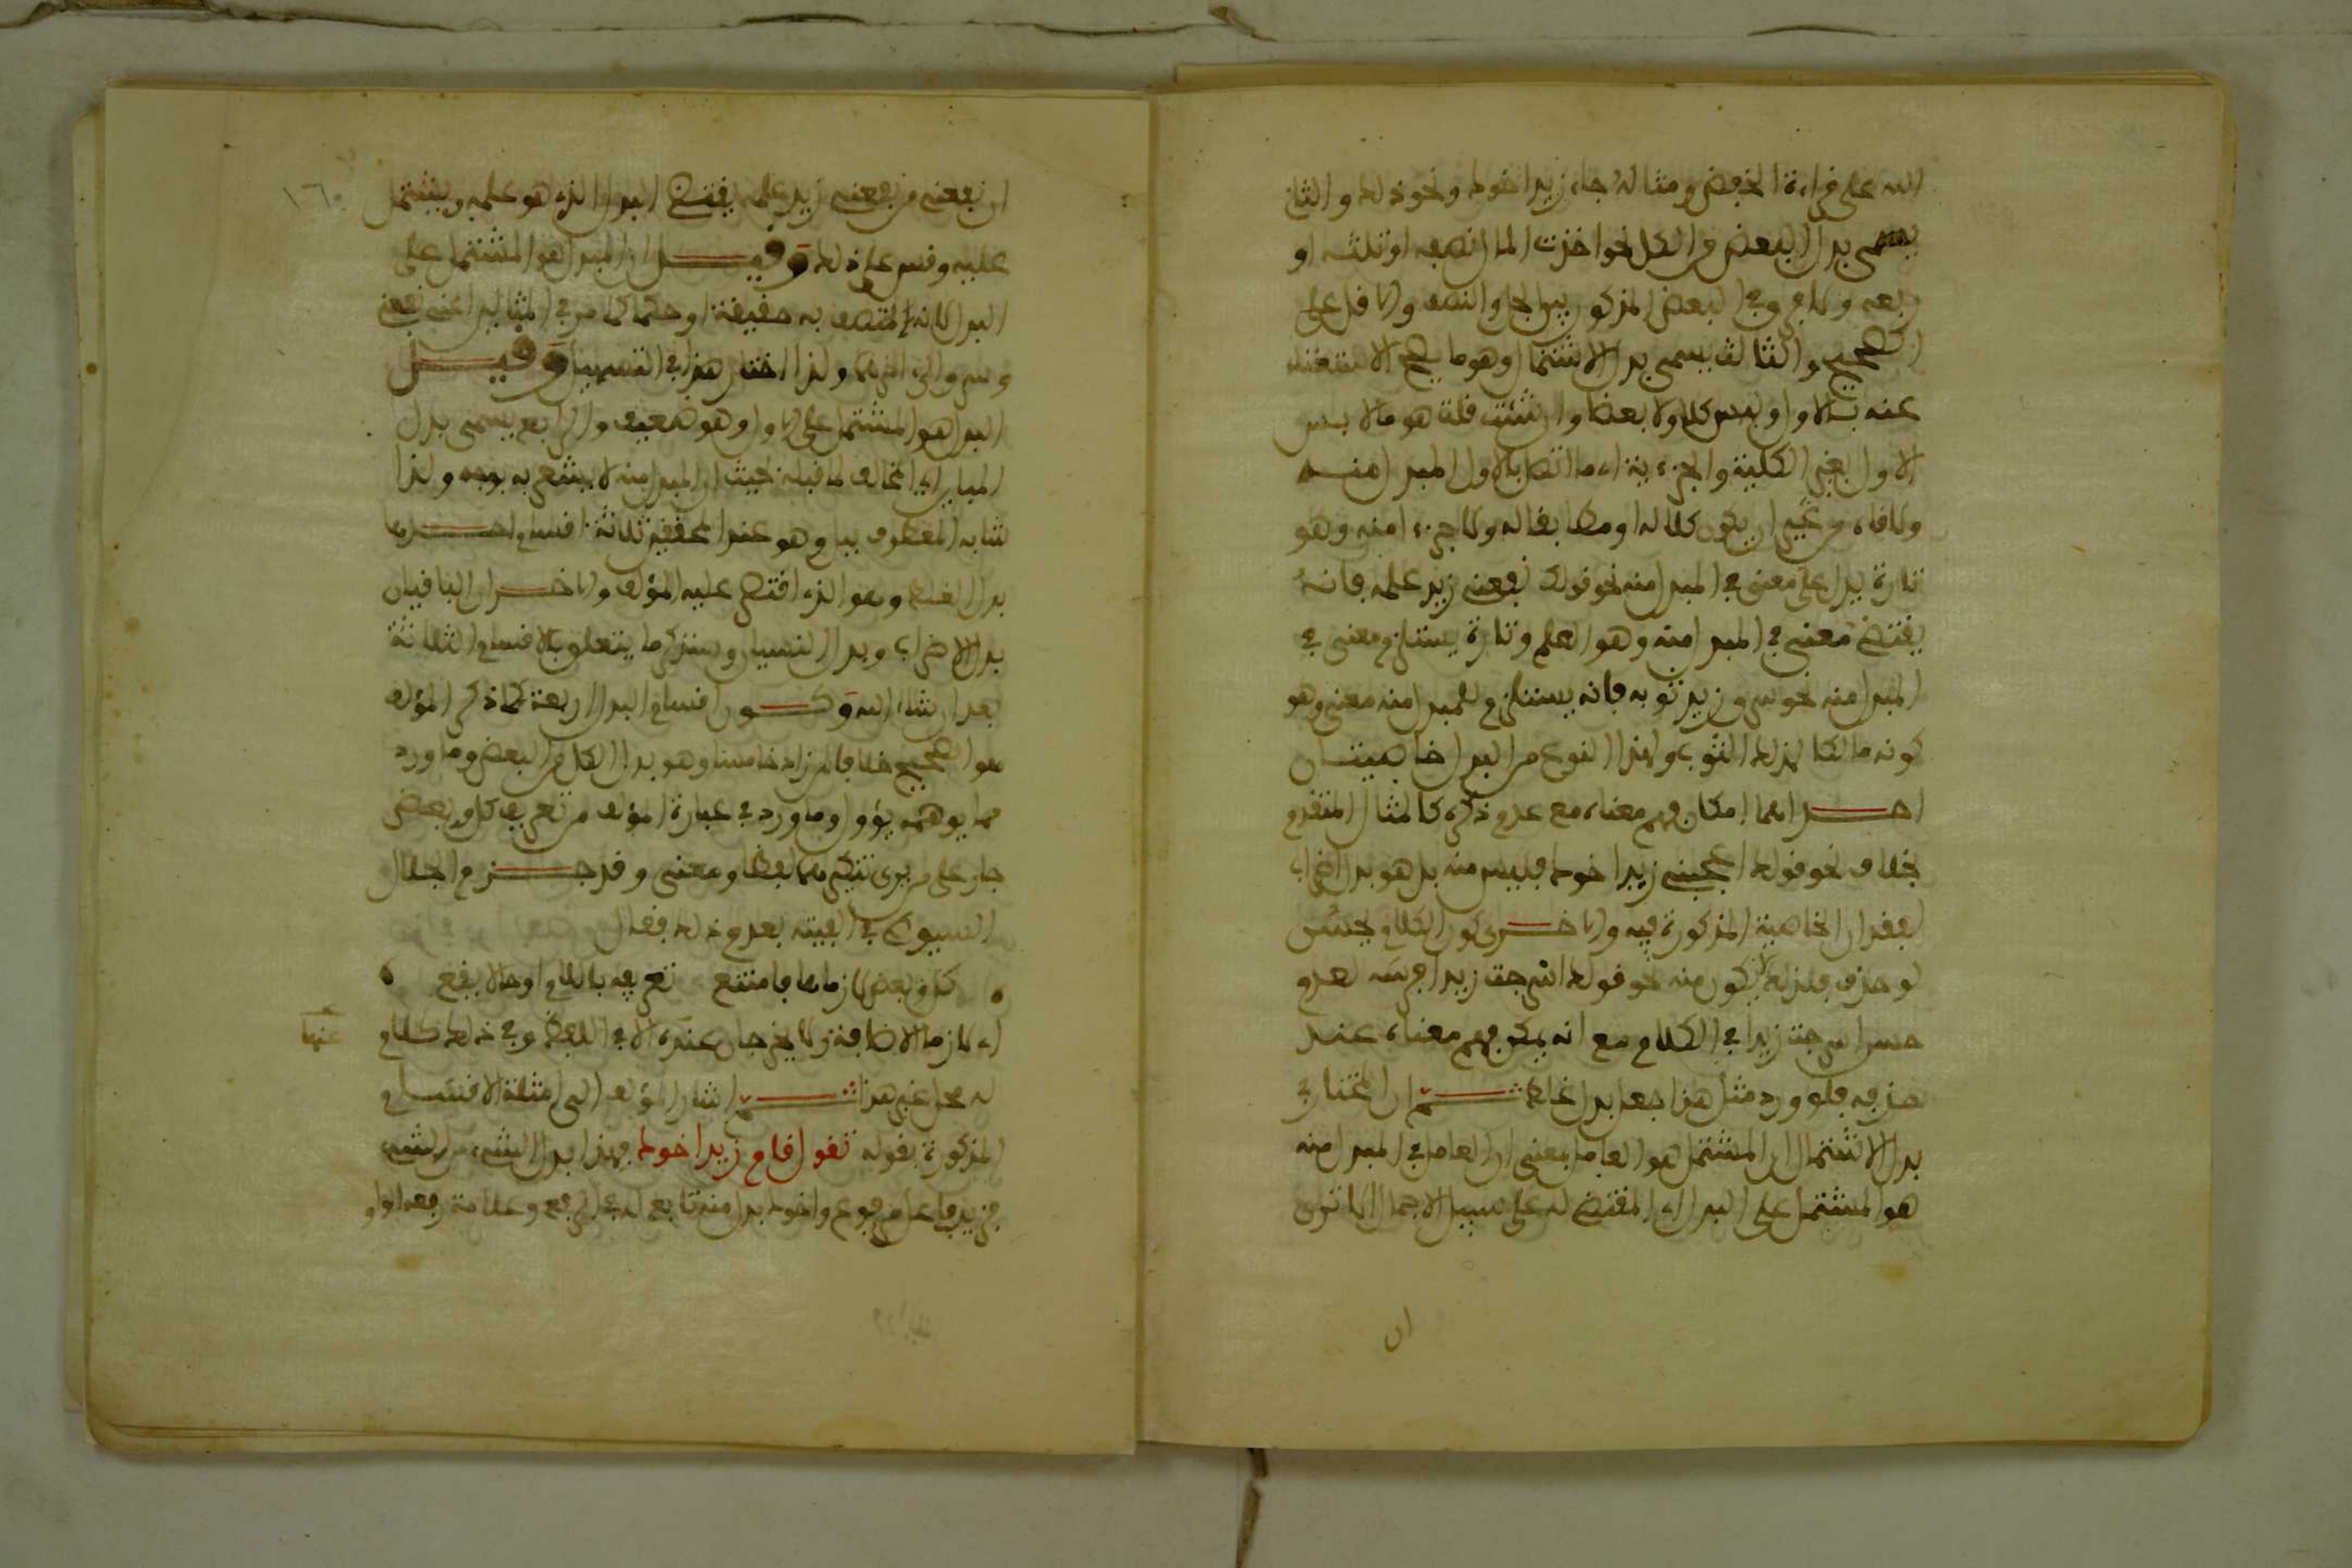 الله على قراءة الخفض ومثاله جاء زيد اخوك ونحو ذلك والثاني
يسمى بدل البعض من الكل نحو اخذت المال نصفه او ثلثه او
ربعه ولا فرق في البعض المذكور بين الجل والنصف والاقل على
الصحيح والثالث يسمى بدل الاشتمال وهو ما يصح الاستغناء
عنه بالاول وليس كلا ولا بعضا وان شئت قلت هو ما لابس
الاول بغير الكلية والجزءية اي ما اتصل بالاول المبدل منه
ولاقاه من غير ان يكون كلا له او مطابقا له ولا جزءا منه وهو
تارة يدل على معنى في المبدل منه نحو قولك نفعني زيد علمه فانه
يقتضي معنى في المبدل منه وهو العلم وتارة يستلزم معنى في
المبدل منه نحو سرق زيد ثوبه فانه يستلزم للمبدل منه معنى وهو
كونه مالكا لذلك الثوب ولهذا النوع من البدل خاصيتان
احداهما امكان فهم معناه مع عدم ذكره كالمثال المتقدم
بخلاف نحو قولك اعجبني زيد اخوك فليس منه بل هو بدل اضراب
لفقدان الخاصية المذكورة فيه والاخرى كون الكلام يحسن
لو حذف فلذلك لا يكون منه نحو قولك اسرجت زيدا فرسه لعدم
حسن اسرجت زيدا في الكلام مع انه يمكن فهم معناه عند
حذفه فلو ورد مثل هذا جعل بدل غلط ثم ان المختار في
بدل الاشتمال ان المشتمل هو العامل بمعنى ان العامل في المبدل منه
هو المشتمل على البدل اي المقتضي له على سبيل الاجمال الا ترى
ان
١٦٠
ان نفعني من نفعني زيد علمه يقتضي البدل الذي هو علمه ويشتمل
عليه وقس على ذلك وقيل ان المبدل هو المشتمل على
البدل لانه المتصف به حقيقة او حكما كما مر في المثالين اعني نفعني
وسرق والى ولذا اختار هذا في التسهيل وقيل
البدل هو المشتمل على الاول وهو ضعيف والرابع يسمى بدل
المباين اي المخالف لما قبله بحيث ان المبدل منه لا يشعر به بوجه ولذا
شابه المعطوف ببل وهو عند المحققين ثلاثة اقسام احدها
بدل الغلط وهو الذي اقتصر عليه المؤلف والاخران الباقيان
بدل الاضراب وبدل النسيان وسنذكر ما يتعلق بالاقسام الثلاثة
بعد ان شاء الله وكون اقسام البدل اربعة كما ذكر المؤلف
هو الصحيح خلافا لمن زاد خامسا وهو بدل الكل من البعض وما ورد
مما يوهمه يؤول وما ورد في عبارة المؤلف من تعريف كل وبعض
جار على من يرى تنكيرهما لفظا ومعنى وقد جزم الجلال
السيوطي في الفيته بعدم ذلك فقال
كل وبعض لازماها فامتنع تعريفه باللام او حالا يقع
اي لازما الاضافة ولا يخرجان عنده الا في اللفظ وفي ذلك كلام
عنها
له محل غير هذا ثم اشار المؤلف الى امثلة الاقسام
المذكورة بقوله تقول قام زيد اخوك فهذا بدل الشيء من الشيء
فزيد فاعل مرفوع واخوك بدل منه تابع له في الرفع وعلامة رفعه الواو